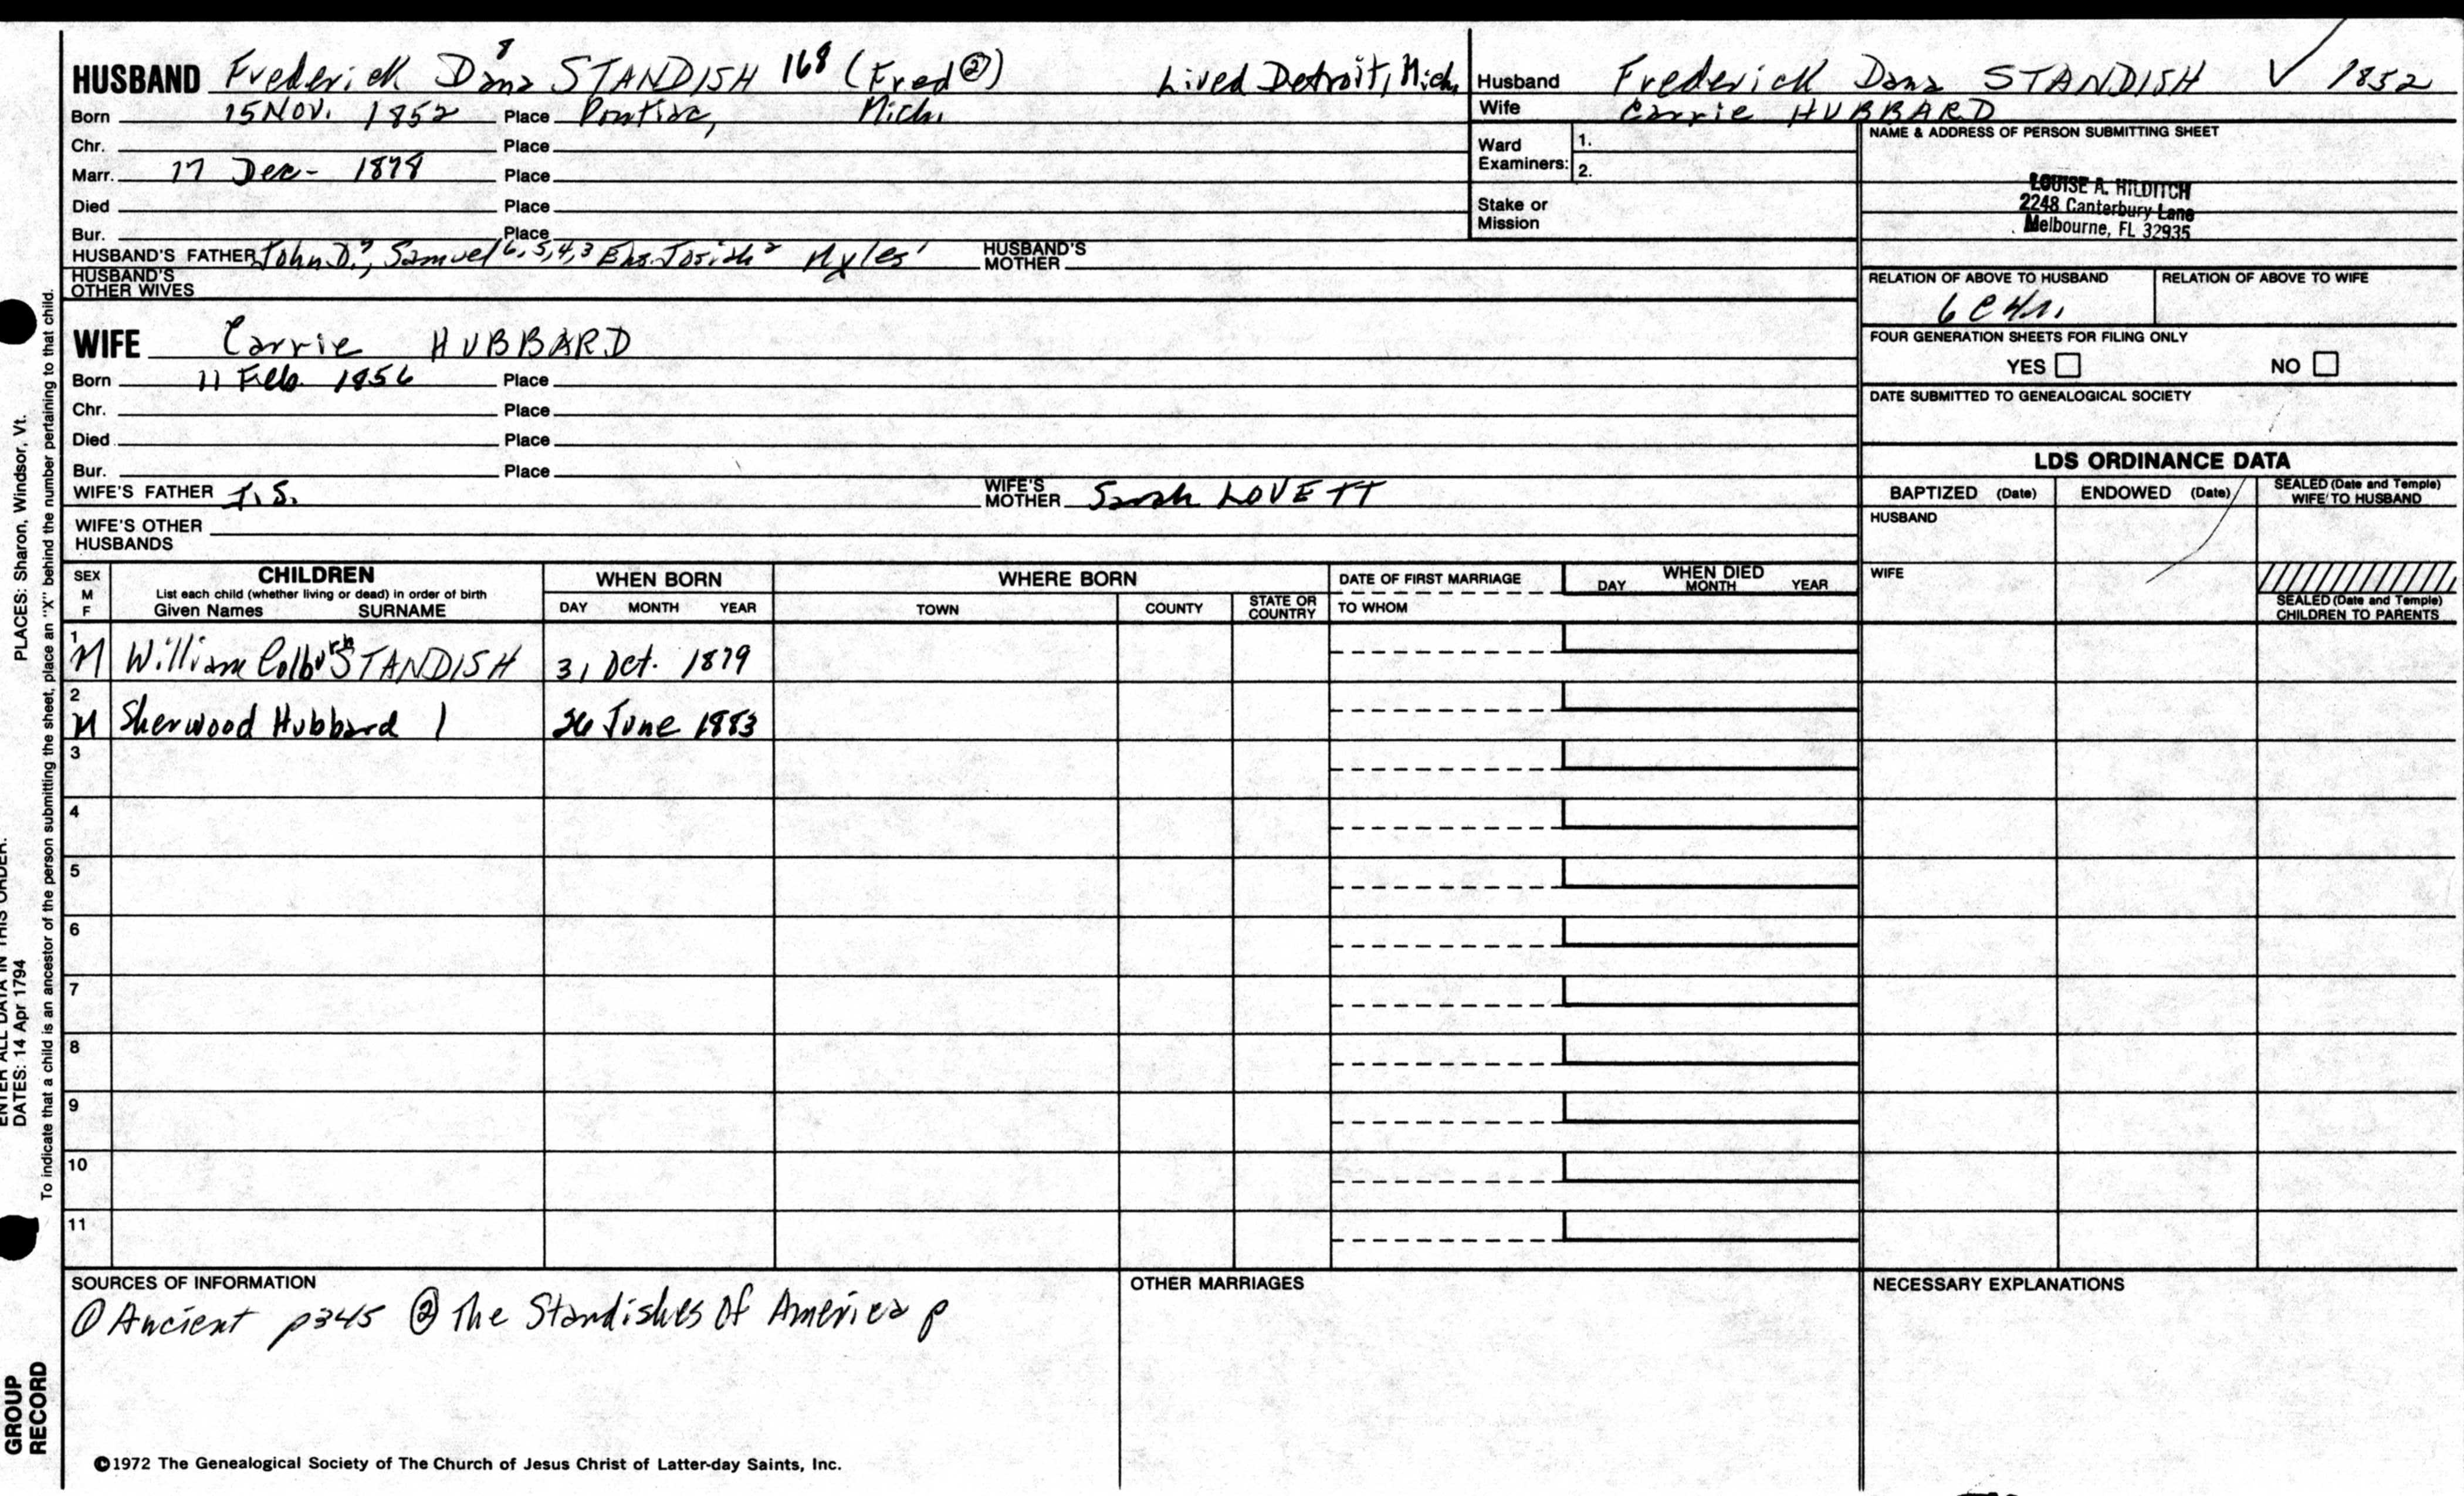 HUSBAND Frederick Dana⁸ STANDISH 168 (Fred ②) Lived Detroit, Mich.
Born 15 Nov. 1852 Place Pontiac, Mich.
Chr. Place
Marr. 17 Dec - 1878 Place
Died Place
Bur. Place
HUSBAND'S FATHER John D.⁷, Samuel 6,5,4,3 Ens. Josiah² Myles¹ HUSBAND'S MOTHER
HUSBAND'S OTHER WIVES
Husband Frederick Dana STANDISH ✓ 1852
Wife Carrie HUBBARD
Ward Examiners: 1.
2.
Stake or Mission
NAME & ADDRESS OF PERSON SUBMITTING SHEET
LOUISE A. HILDITCH
2248 Canterbury Lane
Melbourne, FL 32935
RELATION OF ABOVE TO HUSBAND RELATION OF ABOVE TO WIFE
FOUR GENERATION SHEETS FOR FILING ONLY
YES NO
DATE SUBMITTED TO GENEALOGICAL SOCIETY
WIFE Carrie HUBBARD
Born 11 Feb. 1856 Place
Chr. Place
Died Place
Bur. Place
WIFE'S FATHER WIFE'S MOTHER Sarah LOVETT
WIFE'S OTHER HUSBANDS
LDS ORDINANCE DATA
BAPTIZED (Date) ENDOWED (Date) SEALED (Date and Temple) WIFE TO HUSBAND
HUSBAND
WIFE
SEALED (Date and Temple) CHILDREN TO PARENTS
SEX M F CHILDREN WHEN BORN WHERE BORN DATE OF FIRST MARRIAGE WHEN DIED
List each child (whether living or dead) in order of birth
Given Names SURNAME DAY MONTH YEAR TOWN COUNTY STATE OR COUNTRY TO WHOM DAY MONTH YEAR
1 M William Colburn STANDISH 31 Oct. 1879
2 M Sherwood Hubbard 26 June 1883
3
4
5
6
7
8
9
10
11
SOURCES OF INFORMATION
① Ancient p345 ② The Standishes Of America p
OTHER MARRIAGES
NECESSARY EXPLANATIONS
©1972 The Genealogical Society of The Church of Jesus Christ of Latter-day Saints, Inc.
GROUP
RECORD
ENTER ALL DATA IN THIS ORDER:
DATES: 14 Apr 1794 PLACES: Sharon, Windsor, Vt.
To indicate that a child is an ancestor of the person submitting the sheet, place an "X" behind the number pertaining to that child.